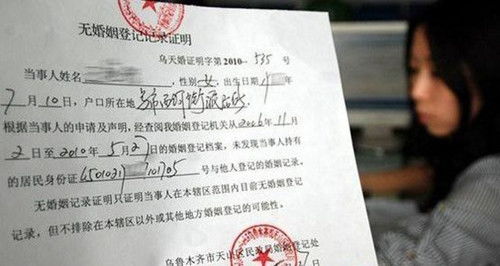 无婚姻登记记录证明
乌天婚证明字第2010--535号
当事人姓名,性别女,出生日期年
7月10日,户口所在地
根据当事人的申请及声明,经查阅我婚姻登记机关从2006年11月
2日至2010年5月2日的婚姻登记档案,未发现当事人持有
的居民身份证号与他人登记的婚姻记录。
无婚姻登记记录证明只证明当事人在本辖区范围内目前无婚姻登记
记录,但不排除在本辖区以外或其他地方婚姻登记的可能性。
乌鲁木齐市天山区民政局婚姻登记处